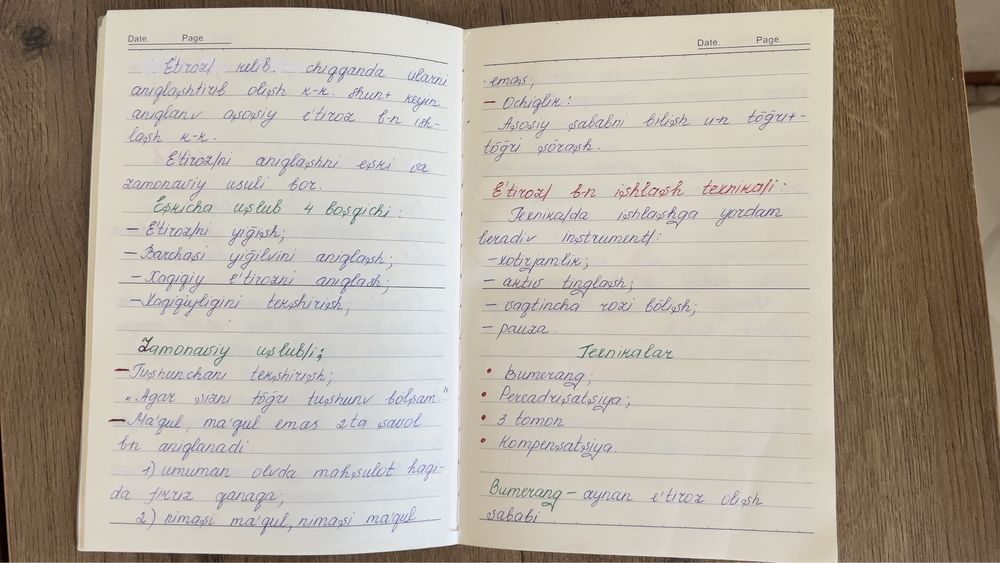 Date. Page.
Etiroz/ kelib chiqqanda ularni
aniqlashtirib olish k-k. Shun+ keyin
aniqlanv asosiy e'tiroz b-n ish-
lash k-k.
E'tiroz/ni aniqlashni eski va
zamonaviy usuli bor.
Eskicha uslub 4 bosqichi:
– E'tiroz/ni yiğish;
– Barchasi yiğilvini aniqlash;
– Xaqiqiy e'tirozni aniqlash;
– Xaqiqiyligini tekshirish;
Zamonaviy uslub/i;
– Tushunchani tekshirish;
"Agar sizni tõğri tushunv bolsam"
– Ma'qul, ma'qul emas 2ta savol
b-n aniqlanadi.
1) umuman olvda mahsulot haqi-
da fikriz qanaqa;
2) nimasi ma'qul, nimasi ma'qul
Date. Page.
emas;
– Ochiqlik:
Asosiy sababni bilish u-n tõğri+-
tõğri sõrash.
E'tiroz/ b-n ishlash texnika/i:
Texnika/da ishlashga yordam
beradiv instrument/:
– xotirjamlik;
– aktiv tinglash;
– vaqtincha rozi bõlish;
– pauza.
Texnikalar
• Bumerang;
• Pereadrisatsiya;
• 3 tomon
• Kompensatsiya.
Bumerang – aynan e'tiroz olish
sababi